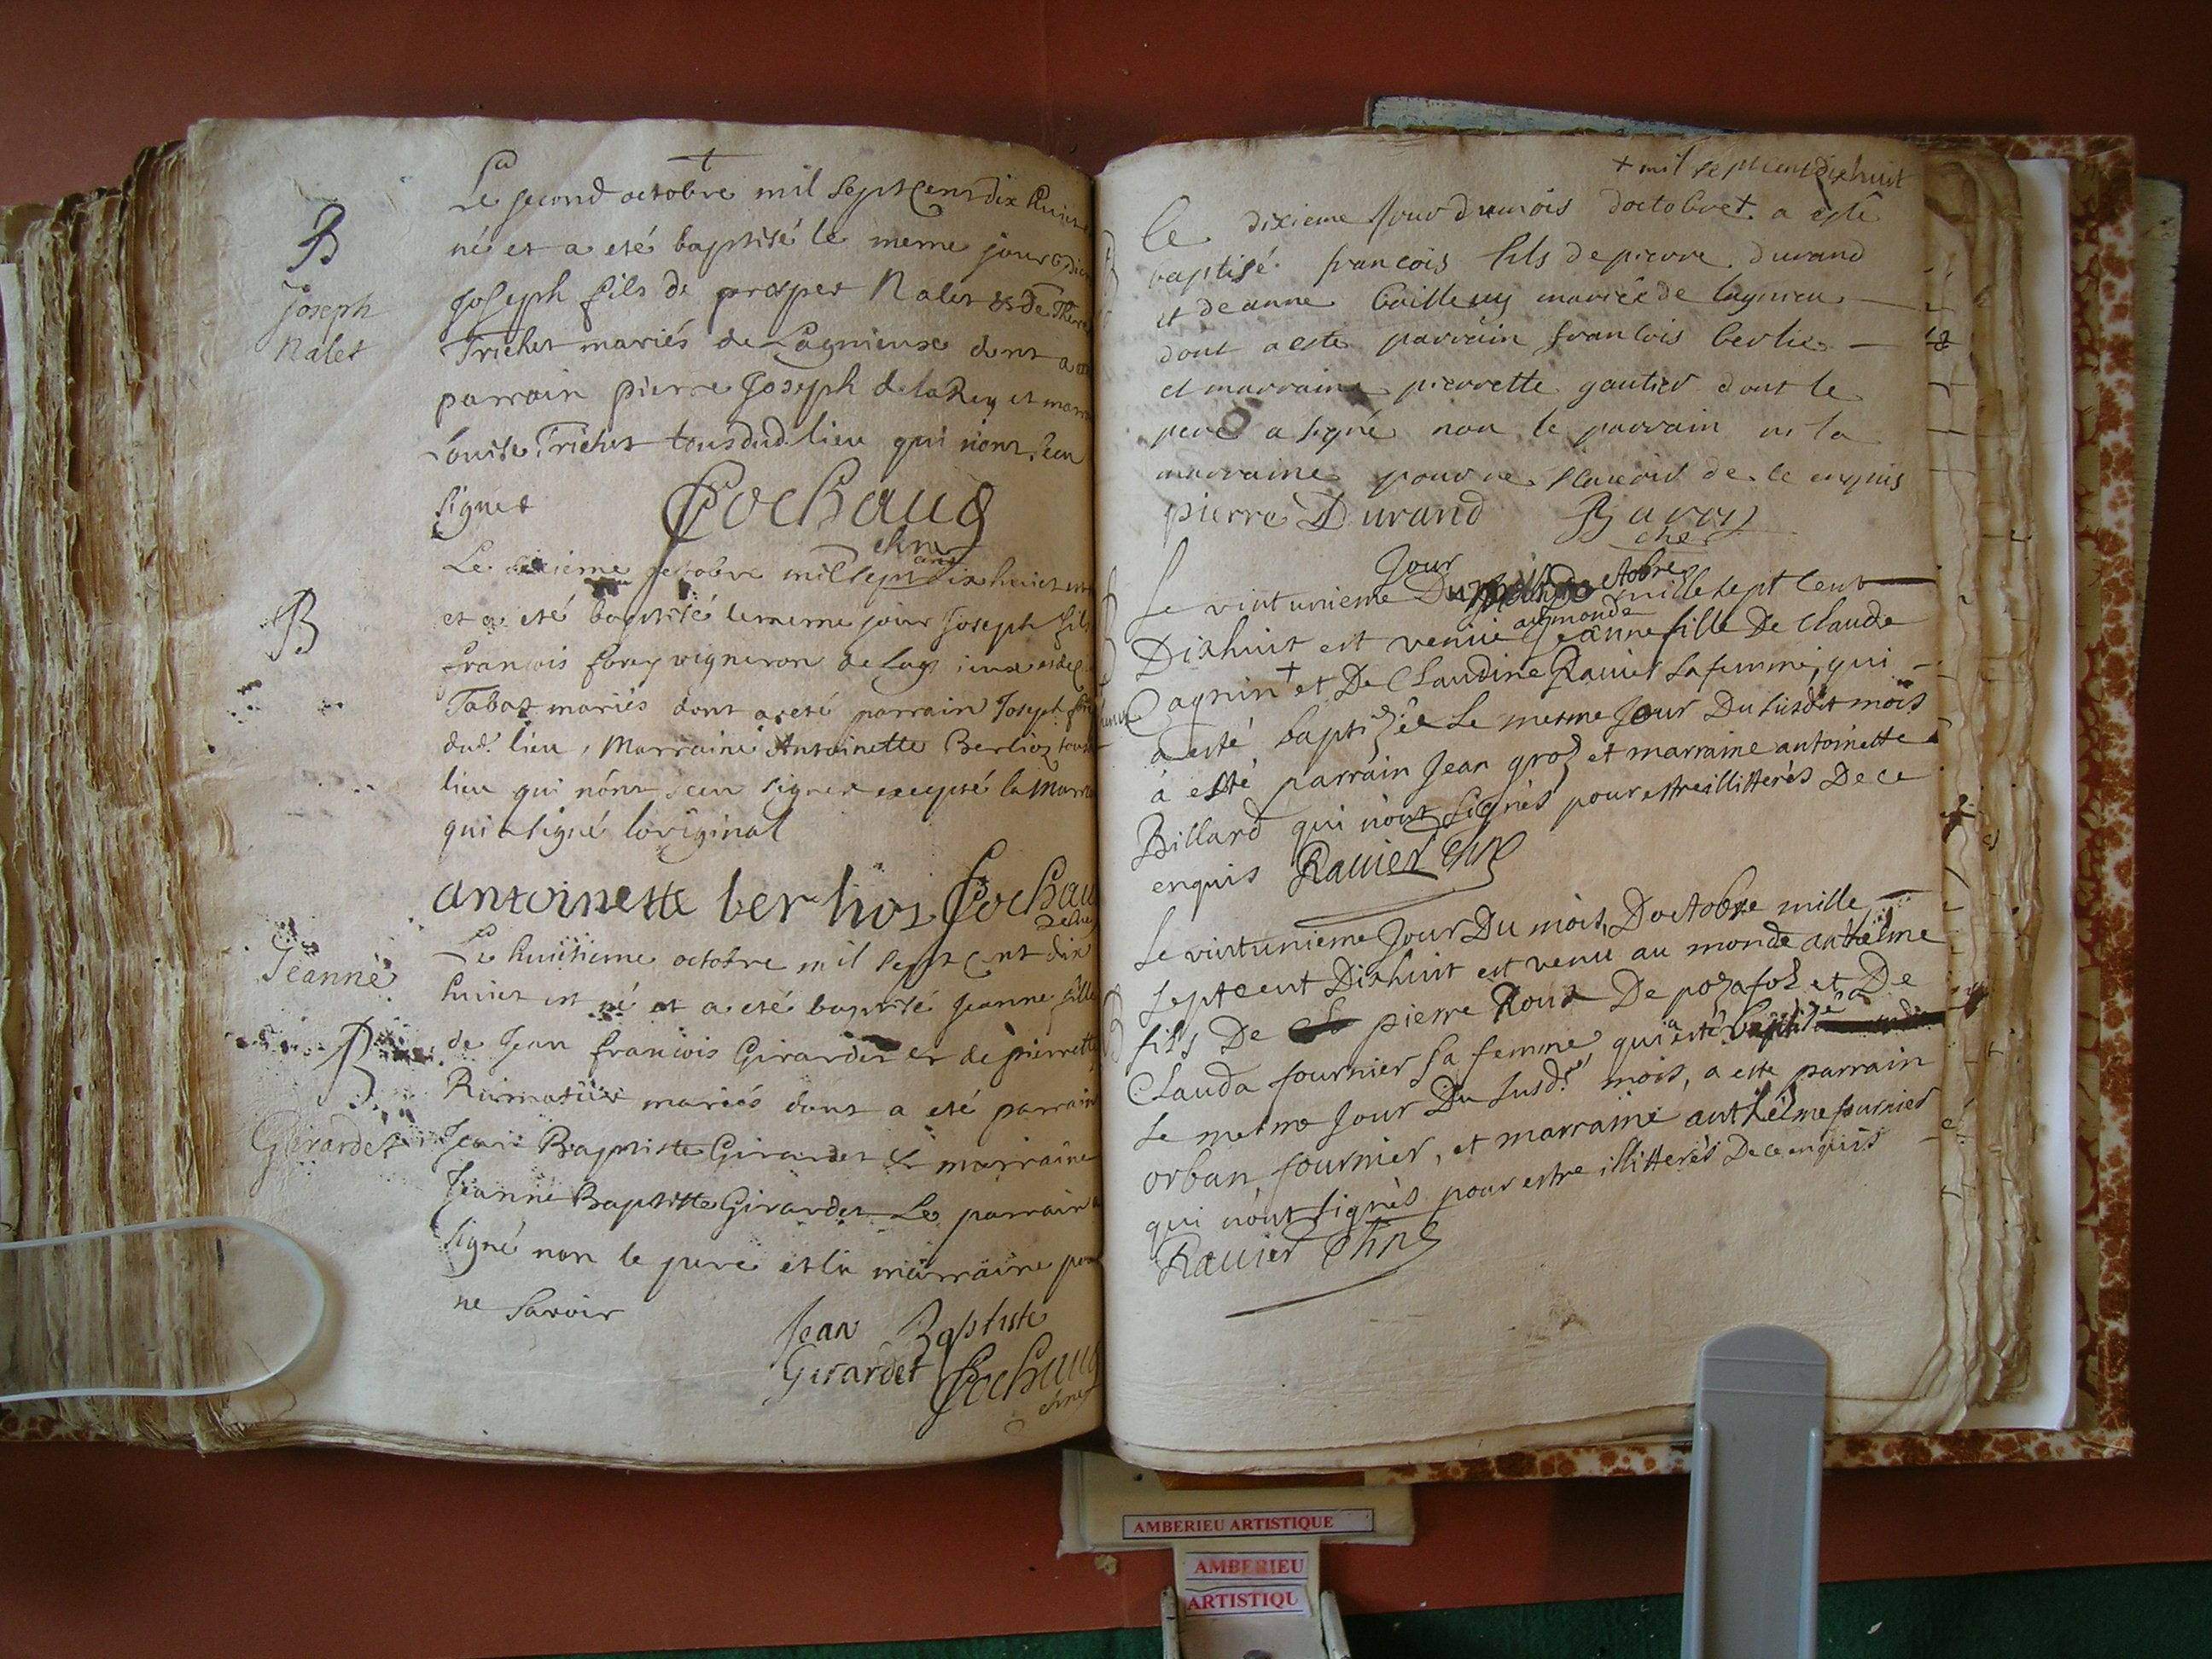 B
Joseph
Nalet
Le second octobre mil sept cens dix huict
né et a eté baptisé le meme jour
Joseph fils de prosper Nalet & de
Trichet mariés de Lagnieux dont a
parrain pierre Joseph delaRey et
Louise Trichet tous dud. lieu qui n'ont sceu
signer
Cochaud
B
Le octobre mil sept cent dix huict
et a eté baptisé le meme jour Joseph fils
francois forey vigneron de Lagnieux
Tabaz mariés dont a eté parrain Joseph
dud. lieu, Marraine Antoinette Berlioz
lieu qui n'ont sceu signer excepté la
qui a signé loriginal
antoinette berlioz
Jeanne
B
Girardet
Le huictieme octobre mil sept cent dix
huict est né et a eté baptisé Jeanne fille
de Jean francois Girardet et de pierrette
mariés dont a eté parrain
Jean Baptiste Girardet & marraine
Jeanne Baptiste Girardet Le parrain a
signé non le pere et la marraine
ne savoir
Jean Baptiste
Girardet Cochaud
+ mil sept cent dix huit
Le dixieme Jour du mois doctobre + a esté
baptisé francois fils de pierre durand
et de anne mariés de lagnieu
dont a esté parrain francois berlie
et marraine pierrette gautier dont le
pere a signé non le parrain ni la
marraine pour ne scavoir de ce enquis
pierre Durand
Le vintunieme Jour Du octobre mille sept cent
Dixhuit est venüe au monde Jeanne fille De Claude
Cagnin + et De Claudine Ravier sa femme, qui
a esté baptizée Le mesme Jour Du susdit mois
à esté parrain Jean groz et marraine antoinette
Billard qui n'ont signés pour estre illitterés De ce
enquis Ravier
Le vintunieme Jour Du mois Doctobre mille
sept cent Dixhuit est venu au monde anthelme
fils De pierre Roux De pozafol et De
Clauda fournier sa femme qui a esté baptizé
Le mesme Jour Du susd. mois, a esté parrain
orban fournier, et marraine anthelme fournier
qui n'ont signés pour estre illitterés De ce enquis
Ravier
AMBERIEU ARTISTIQUE
AMBERIEU
ARTISTIQU